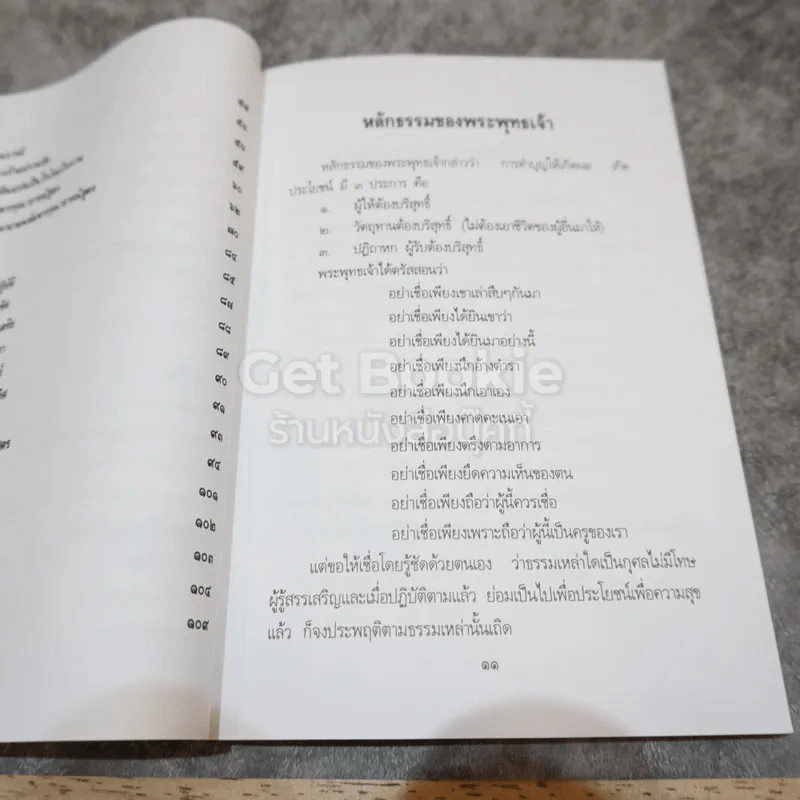 ๗๐
๘๔
๘๕
๘๗
๘๘
๘๙
๙๐
๙๑
๙๓
๙๔
๑๐๑
๑๐๒
๑๐๓
๑๐๔
๑๐๙
หลักธรรมของพระพุทธเจ้า
หลักธรรมของพระพุทธเจ้ากล่าวว่า การทำบุญให้เกิดผล เกิด
ประโยชน์ มี ๓ ประการ คือ
๑. ผู้ให้ต้องบริสุทธิ์
๒. วัตถุทานต้องบริสุทธิ์ (ไม่ต้องเอาชีวิตของผู้อื่นมาให้)
๓. ปฏิถาหก ผู้รับต้องบริสุทธิ์
พระพุทธเจ้าได้ตรัสสอนว่า
อย่าเชื่อเพียงเขาเล่าสืบๆกันมา
อย่าเชื่อเพียงได้ยินเขาว่า
อย่าเชื่อเพียงได้ยินมาอย่างนี้
อย่าเชื่อเพียงนึกอ้างตำรา
อย่าเชื่อเพียงนึกเอาเอง
อย่าเชื่อเพียงคาดคะเนเอา
อย่าเชื่อเพียงตรึงตามอาการ
อย่าเชื่อเพียงยึดความเห็นของตน
อย่าเชื่อเพียงถือว่าผู้นี้ควรเชื่อ
อย่าเชื่อเพียงเพราะถือว่าผู้นี้เป็นครูของเรา
แต่ขอให้เชื่อโดยรู้ชัดด้วยตนเอง ว่าธรรมเหล่าใดเป็นกุศลไม่มีโทษ
ผู้รู้สรรเสริญและเมื่อปฏิบัติตามแล้ว ย่อมเป็นไปเพื่อประโยชน์เพื่อความสุข
แล้ว ก็จงประพฤติตามธรรมเหล่านั้นเถิด
๑๑
Get Bookie
ร้านหนังสือบุ๊คกี้